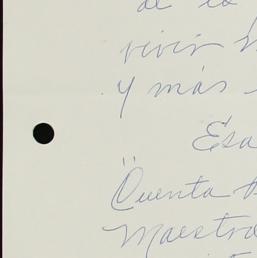 de lo
vivir
y más
Esa
"Cuenta
Maestro